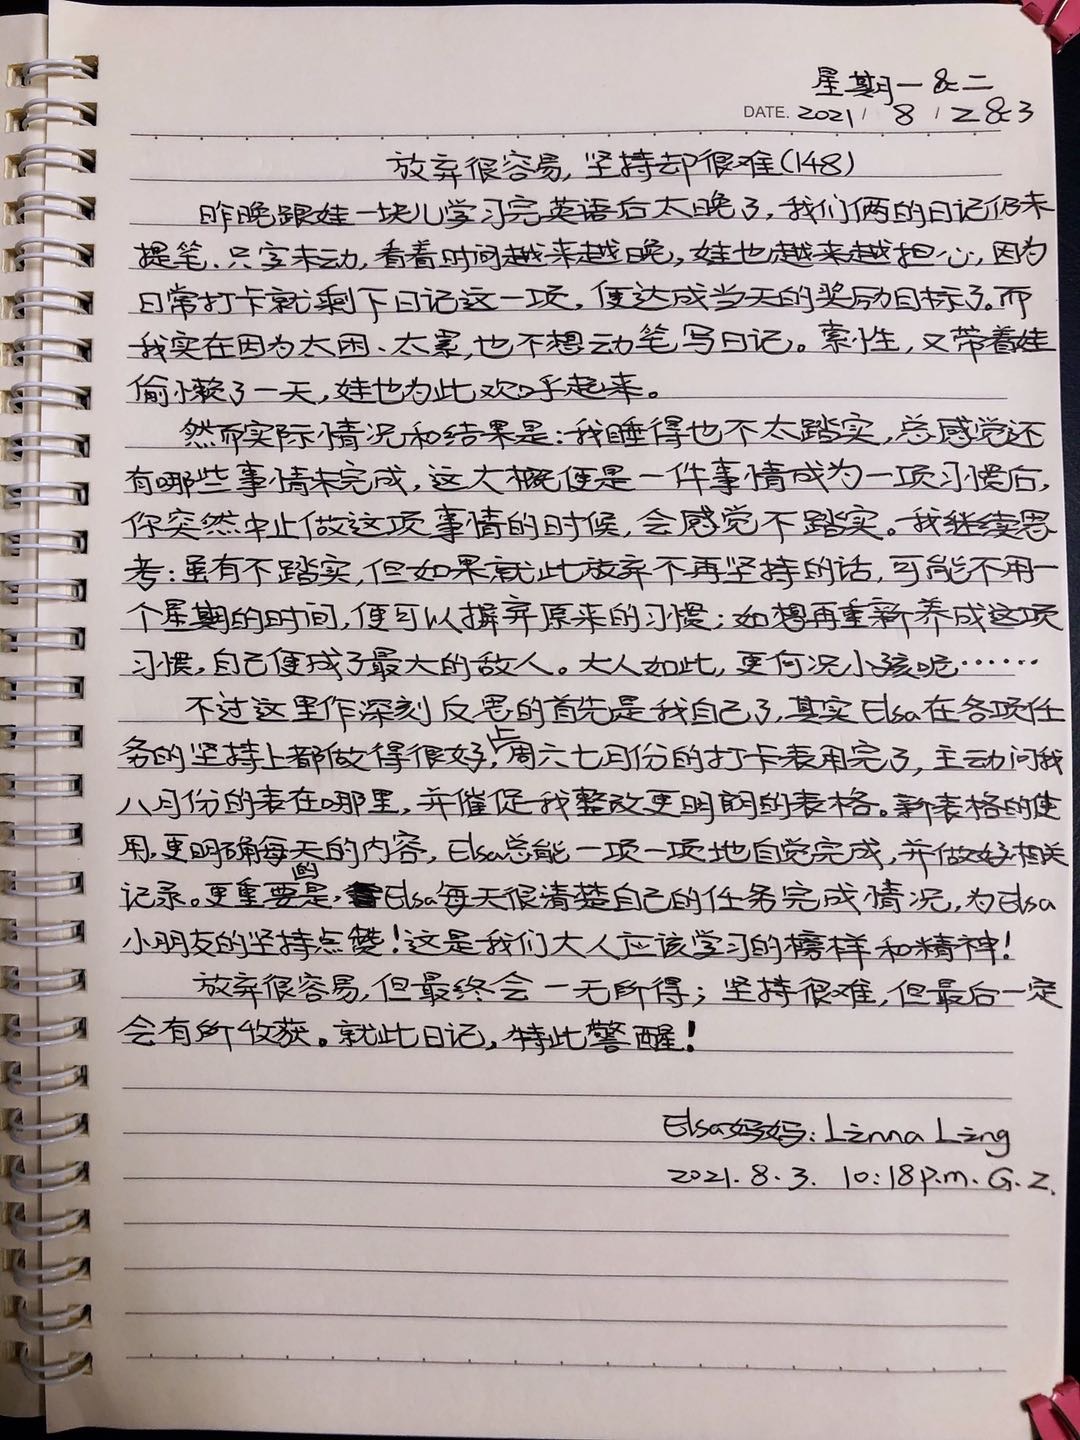 星期一&二
DATE. 2021 / 8 / 2&3
放弃很容易，坚持却很难(148)
昨晚跟娃一块儿学习完英语后太晚了，我们俩的日记仍未
提笔、只字未动，看着时间越来越晚，娃也越来越担心，因为
日常打卡就剩下日记这一项，便达成当天的奖励目标了。而
我实在因为太困、太累，也不想动笔写日记。索性，又带着娃
偷懒了一天，娃也为此欢呼起来。
然而实际情况和结果是：我睡得也不太踏实，总感觉还
有哪些事情未完成，这大概便是一件事情成为一项习惯后，
你突然中止做这项事情的时候，会感觉不踏实。我继续思
考：虽有不踏实，但如果就此放弃不再坚持的话，可能不用一
个星期的时间，便可以摒弃原来的习惯；如想再重新养成这项
习惯，自己便成了最大的敌人。大人如此，更何况小孩呢……
不过这里作深刻反思的首先是我自己了，其实Elsa在各项任
务的坚持上都做得很好，上周六七月份的打卡表用完了，主动问我
八月份的表在哪里，并催促我整改更明朗的表格。新表格的使
用，更明确每天的内容，Elsa总能一项一项地自觉完成，并做好相关
记录。更重要的是，Elsa每天很清楚自己的任务完成情况，为Elsa
小朋友的坚持点赞！这是我们大人应该学习的榜样和精神！
放弃很容易，但最终会一无所得；坚持很难，但最后一定
会有所收获。就此日记，特此警醒！
Elsa妈妈：Linna Ling
2021.8.3. 10:18p.m. G.Z.